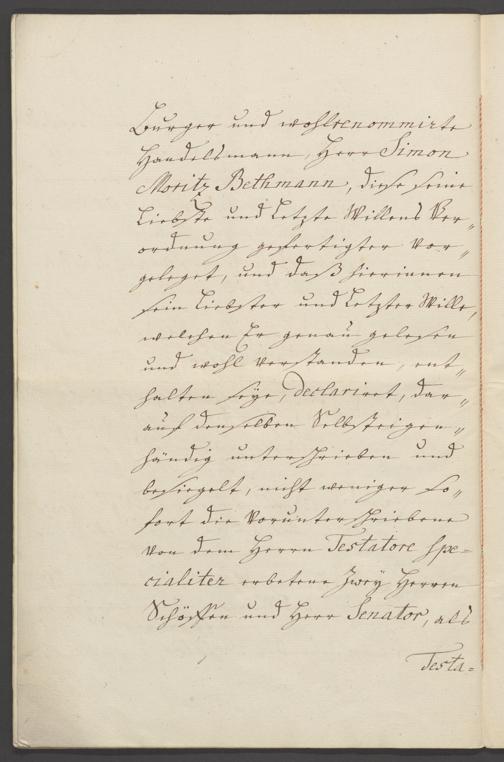 Burger und wohlrenommirte
Handelsmann, Herr Simon
Moritz Bethmann, diese seine
Liebste und Letzte Willens Ver„
ordnung gefertigter vor„
geleget, und daß hierinnen
sein Liebster und Letzter Wille,
welchen Er genau gelesen
und wohl verstanden, ent„
halten seye, declariret, dar„
auf denselben Selbsteigen„
händig unterschrieben und
besiegelt, nicht weniger so„
fort die Vorunterschriebene
von dem Herrn Testatore spe=
cialiter erbetene Zwey Herren
Schöffen und Herr Senator, als
Testa=